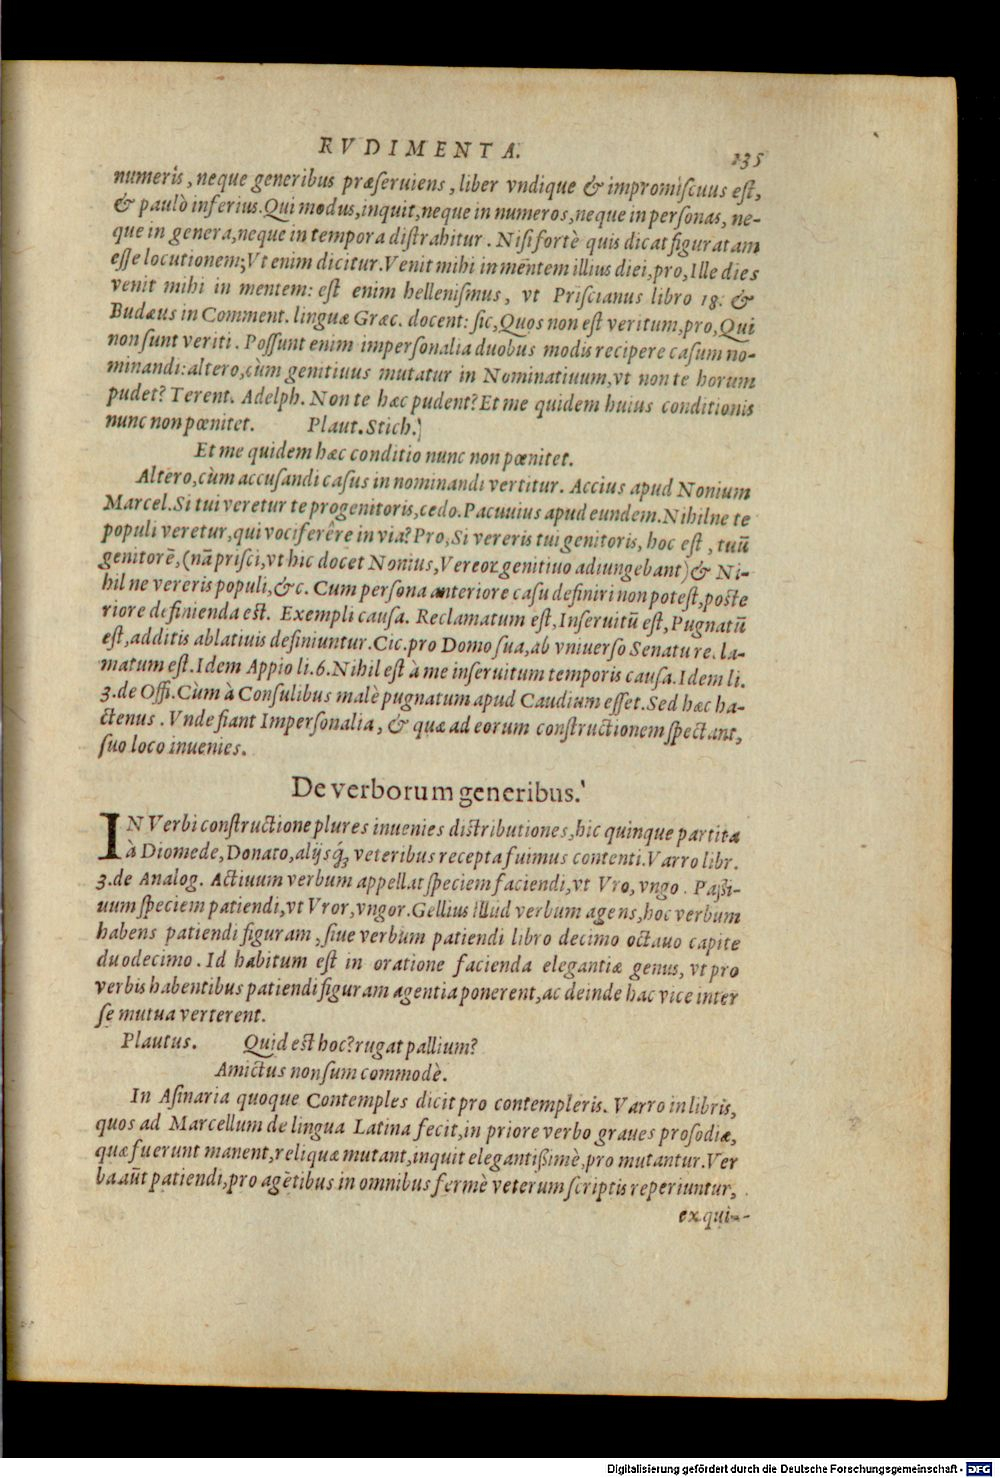 RVDIMENTA. 135
numeris, neque generibus præſeruiens, liber vndique & impromiſcuus eſt,
& paulò inferius. Qui modus, inquit, neque in numeros, neque in perſonas, ne-
que in genera, neque in tempora diſtrahitur. Niſi fortè quis dicat figuratam
eſſe locutionem; Vt enim dicitur. Venit mihi in mētem illius diei, pro, Ille dies
venit mihi in mentem: eſt enim helleniſmus, vt Priſcianus libro 18. &
Budæus in Comment. linguæ Græc. docent: ſic, Quos non eſt veritum, pro, Qui
non ſunt veriti. Poſſunt enim imperſonalia duobus modis recipere caſum no-
minandi: altero, cùm genitiuus mutatur in Nominatiuum, vt non te horum
pudet? Terent. Adelph. Non te hæc pudent? Et me quidem huius conditionis
nunc non pœnitet. Plaut. Stich.
Et me quidem hæc conditio nunc non pœnitet.
Altero, cùm accuſandi caſus in nominandi vertitur. Accius apud Nonium
Marcel. Si tui veretur te progenitoris, cedo. Pacuuius apud eundem. Nihilne te
populi veretur, qui vociferêre in via? Pro, Si vereris tui genitoris, hoc eſt, tuū
genitorē, (nā priſci, vt hic docet Nonius, Vereor genitiuo adiungebant) & Ni-
hil ne vereris populi, &c. Cum perſona anteriore caſu definiri non poteſt, poſte
riore definienda eſt. Exempli cauſa. Reclamatum eſt, Inſeruitū eſt, Pugnatū
eſt, additis ablatiuis definiuntur. Cic. pro Domo ſua, ab vniuerſo Senatu recla-
matum eſt. Idem Appio li. 6. Nihil eſt à me inſeruitum temporis cauſa. Idem li.
3. de Offi. Cùm à Conſulibus malè pugnatum apud Caudium eſſet. Sed hæc ha-
ctenus. Vnde fiant Imperſonalia, & quæ ad eorum conſtructionem ſpectant,
ſuo loco inuenies.
De verborum generibus.
IN Verbi conſtructione plures inuenies diſtributiones, hic quinque partita
à Diomede, Donato, alijsq́; veteribus recepta fuimus contenti. Varro libr.
3. de Analog. Actiuum verbum appellat ſpeciem faciendi, vt Vro, vngo. Paſſi-
uum ſpeciem patiendi, vt Vror, vngor. Gellius illud verbum agens, hoc verbum
habens patiendi figuram, ſiue verbum patiendi libro decimo octauo capite
duodecimo. Id habitum eſt in oratione facienda elegantiæ genus, vt pro
verbis habentibus patiendi figuram agentia ponerent, ac deinde hac vice inter
ſe mutua verterent.
Plautus. Quid eſt hoc? rugat pallium?
Amictus non ſum commodè.
In Aſinaria quoque Contemples dicit pro contempleris. Varro in libris,
quos ad Marcellum de lingua Latina fecit, in priore verbo graues proſodiæ,
quæ fuerunt manent, reliquæ mutant, inquit elegantiſſimè, pro mutantur. Ver
ba aūt patiendi, pro agētibus in omnibus fermè veterum ſcriptis reperiuntur,
ex qui-
Digitalisierung gefördert durch die Deutsche Forschungsgemeinschaft - DFG